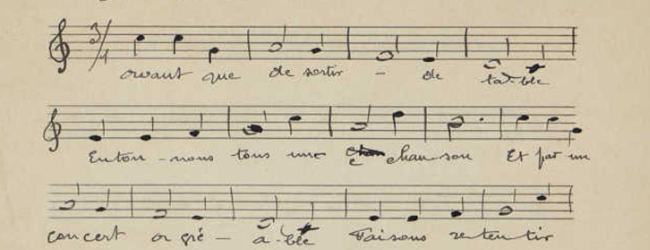 3/4
avant que de sortir – de ta-ble
Enton-nons tous une chan-son Et par un
concert a gré – a-ble Faisons re ten tir